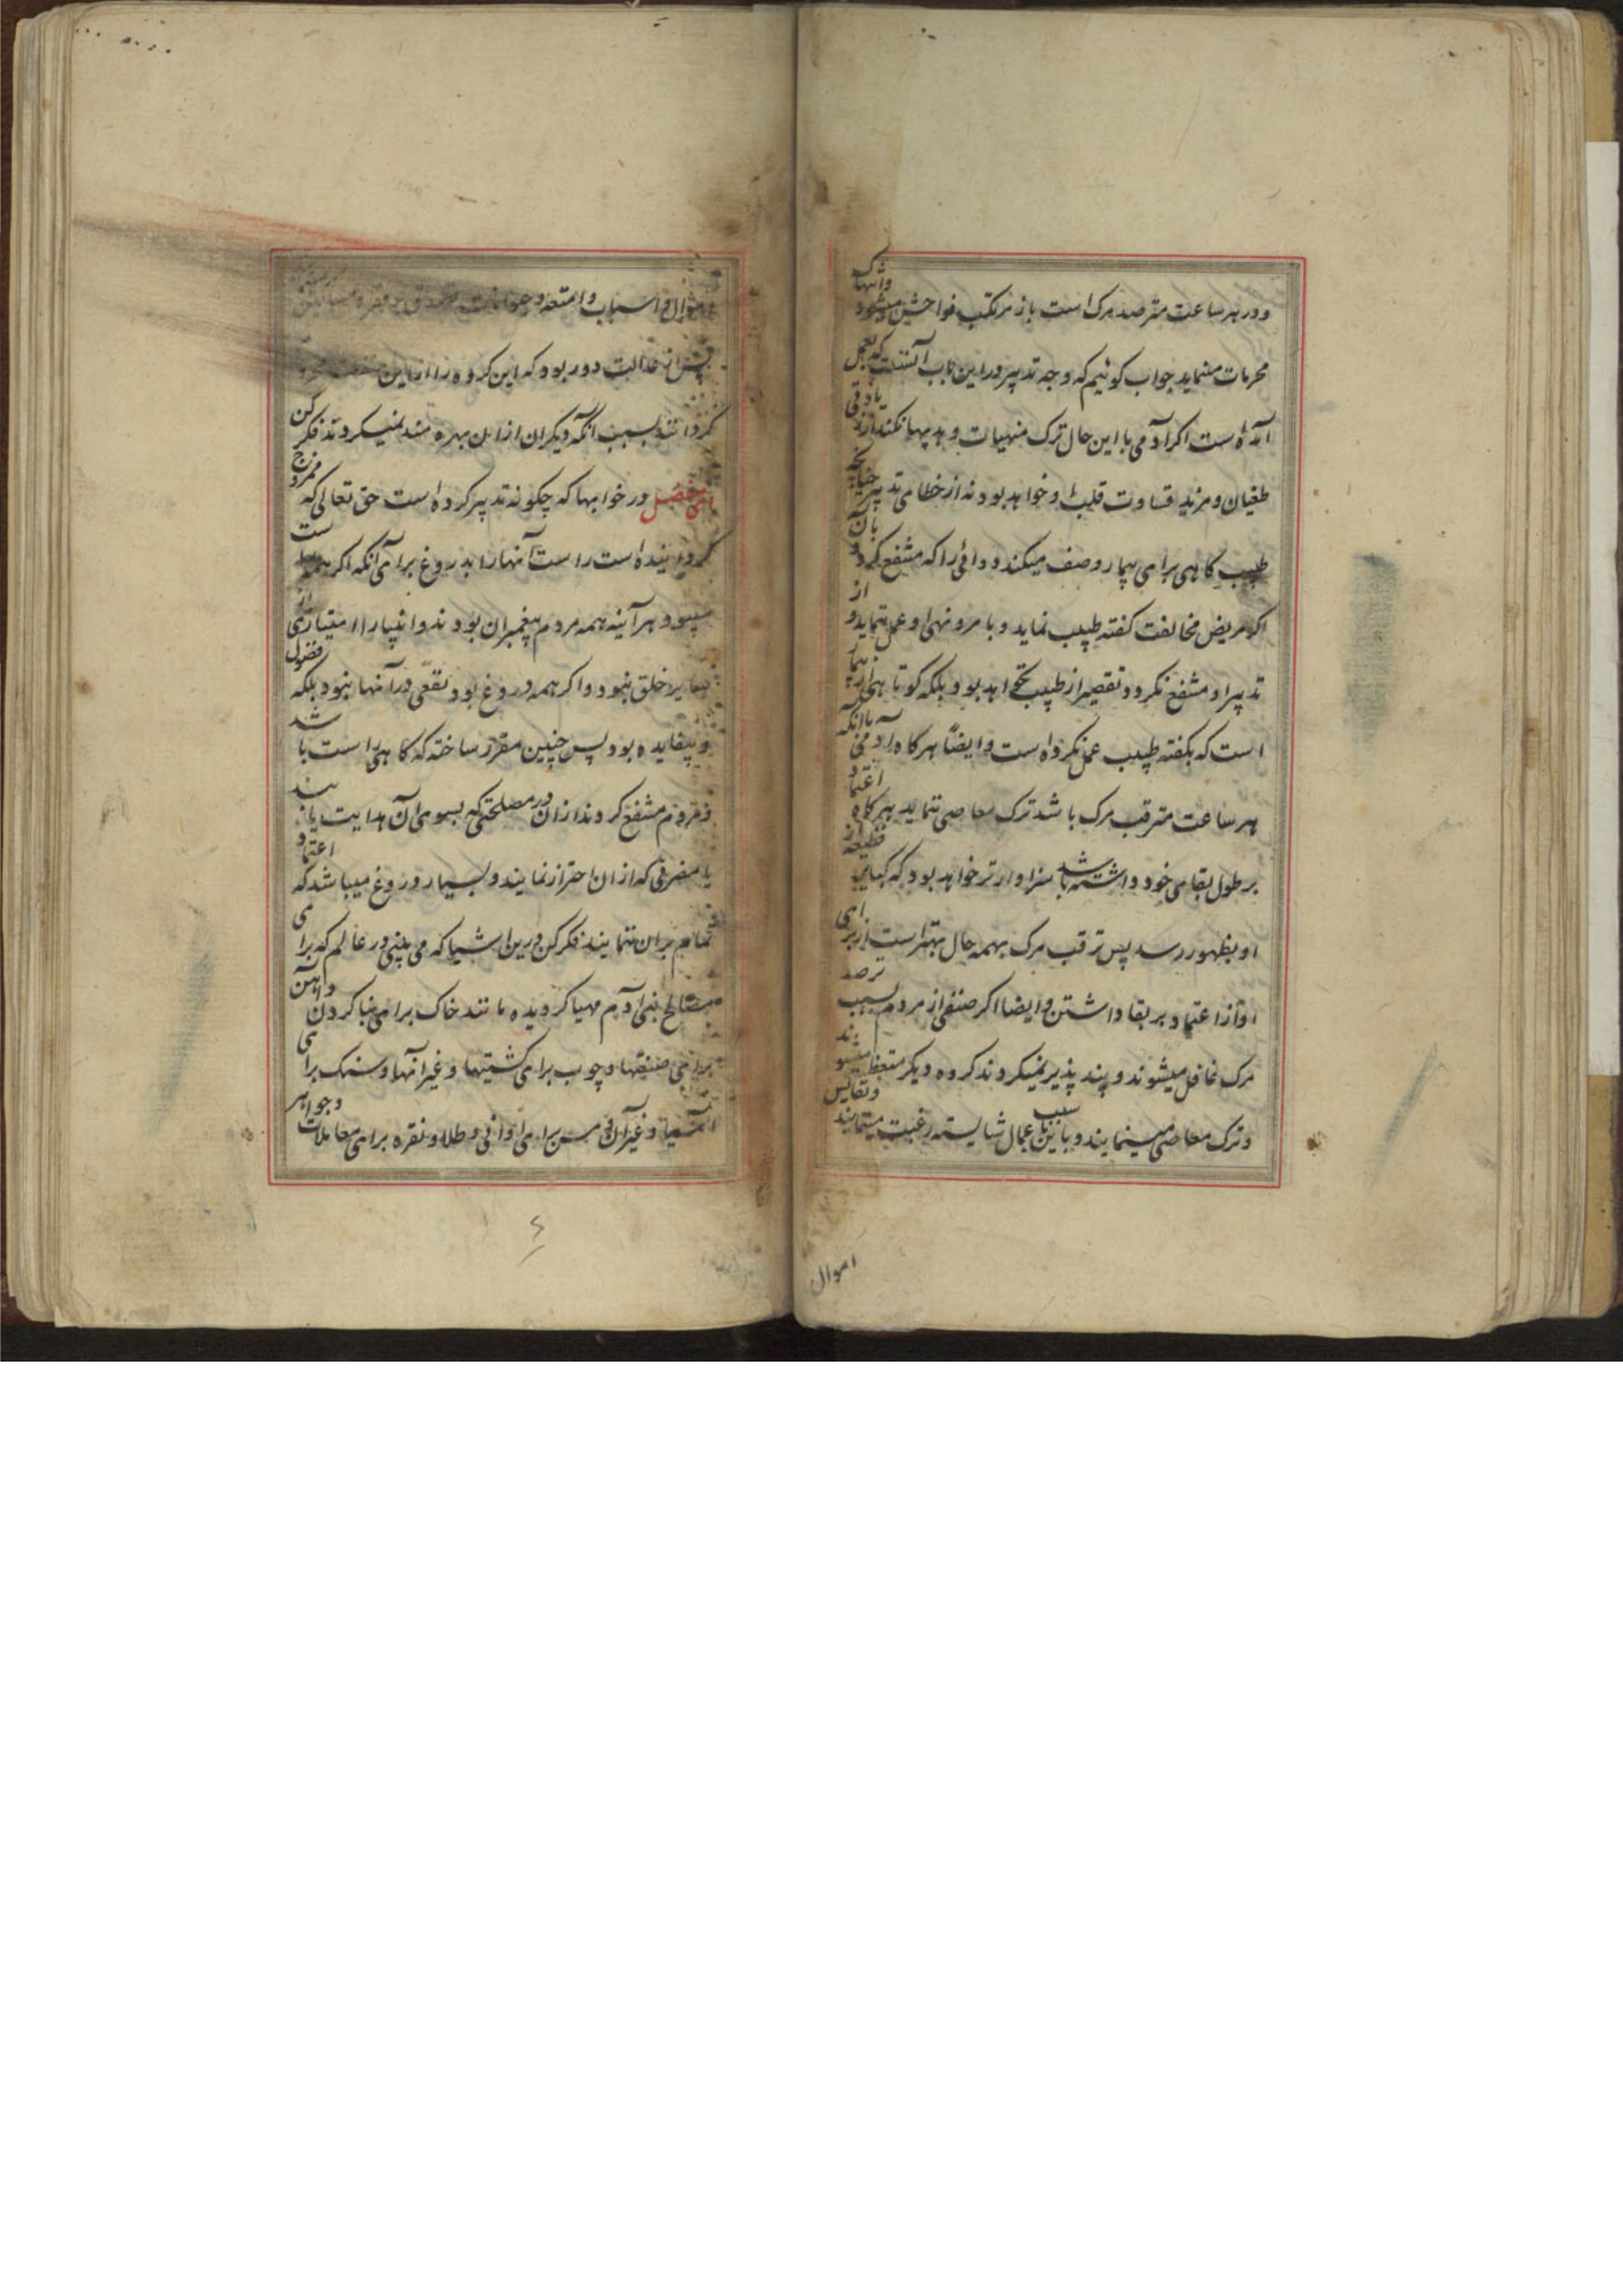 و در هر ساعت مترصد مرک است باز مرتکب فواحش میشود و انتهاک
محرمات مینماید جواب کوئیم که وجه تدبیر در این باب آنست که بعمل
آمده است اکر آدمی با این حال ترک منهیات و بدیها نکند از زیادتی
طغیان و مزید قساوت قلب او خواهد بود نه از خطای تدبیر چنانچه
طبیب کاهی برای بیمار وصف میکند دوائی را که منتفع کردد بآن و
اکر مریض مخالفت کفته طبیب نماید و بامر و نهی او عمل ننماید و از
تدبیر او منتفع نکردد تقصیر از طبیب نخواهد بود بلکه کوتاهی از بیمار
است که بکفته طبیب عمل نکرده است و ایضا هرکاه آدمی با آنکه
هر ساعت مترقب مرک باشد ترک معاصی ننماید هرکاه اعتماد
بر طول بقای خود داشته باشد سزاوارتر خواهد بود که کبایر فظیعه از
او بظهور رسد پس ترقب مرک بهمه حال بهتر است از برای
او از اعتماد بر بقا داشتن و ایضا اکر صنفی از مردم بسبب ترصد
مرک غافل میشوند و پند پذیر نمیکردند کروه دیکر متعظ میشوند
و ترک معاصی مینمایند و باین سبب باعمال شایسته رغبت مینمایند و نفایس
اموال
اموال و اسباب و امتعه و حیوانات تصدق بر فقرا و مساکین
پس از عدالت دور بود که این کروه را از این
کردانند بسبب آنکه دیکران از این بهره مند نمیکردند فکر کن
ای مفضل در خوابها که چکونه تدبیر کرده است حق تعالی که ممزوج
کردانیده است راست آنها را بدروغ برای آنکه اکر همه راست
میبود هر آینه همه مردم پیغمبران بودند و انبیا را امتیازی از
سایر خلق نبود و اکر همه دروغ بود نفعی در آنها نبود بلکه فضول
و بیفایده بود پس چنین مقرر ساخته که کاهی راست باشد
و مردم منتفع کردند از آن در مصلحتی که بسوی آن هدایت یابند
یا مضرتی که از ان احتراز نمایند و بسیار دروغ میباشد که اعتماد
تمام بر ان ننمایند فکر کن درین اشیا که می بینی در عالم که برای
مصالح بنی آدم مهیا کردیده مانند خاک برای بنا کردن و آهن
برای صنعتها و چوب برای کشتیها و غیر آنها و سنک برای
آسیا و غیر آن و مس برای اوانی و طلا و نقره برای معاملات و جواهر
٤